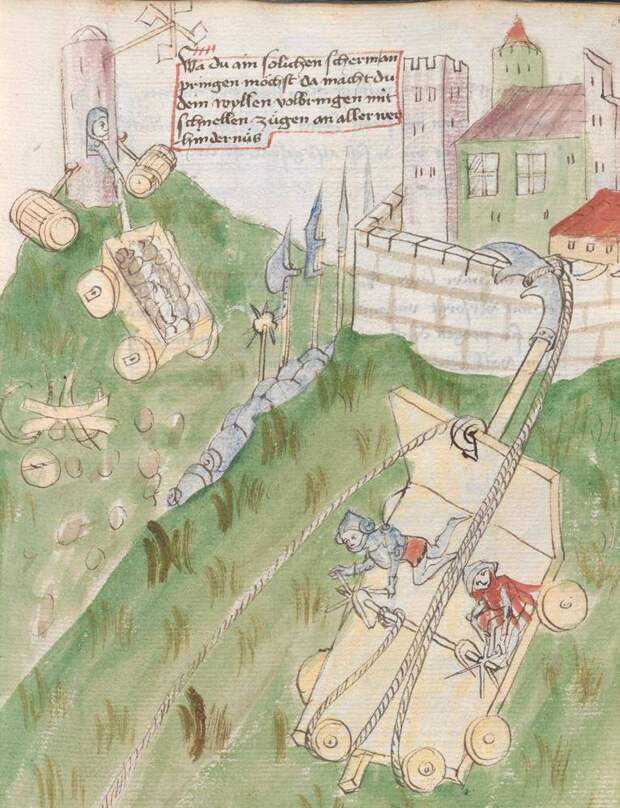 Wa du ain solichen scherman
pringen mochst da macht du
dem wyllen volbringen mit
schnellen zügen an aller ver
hindernüs